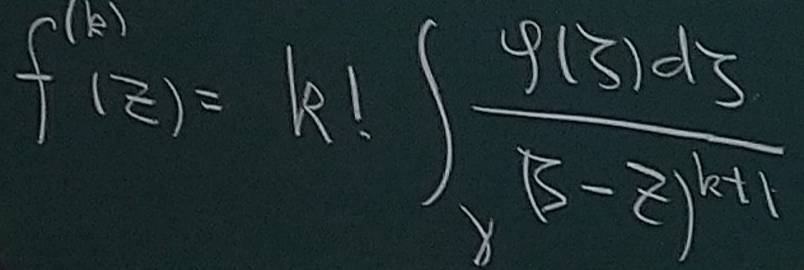 f^{(k)}(z) = k! \int_γ \frac{φ(ζ)dζ}{(ζ-z)^{k+1}}